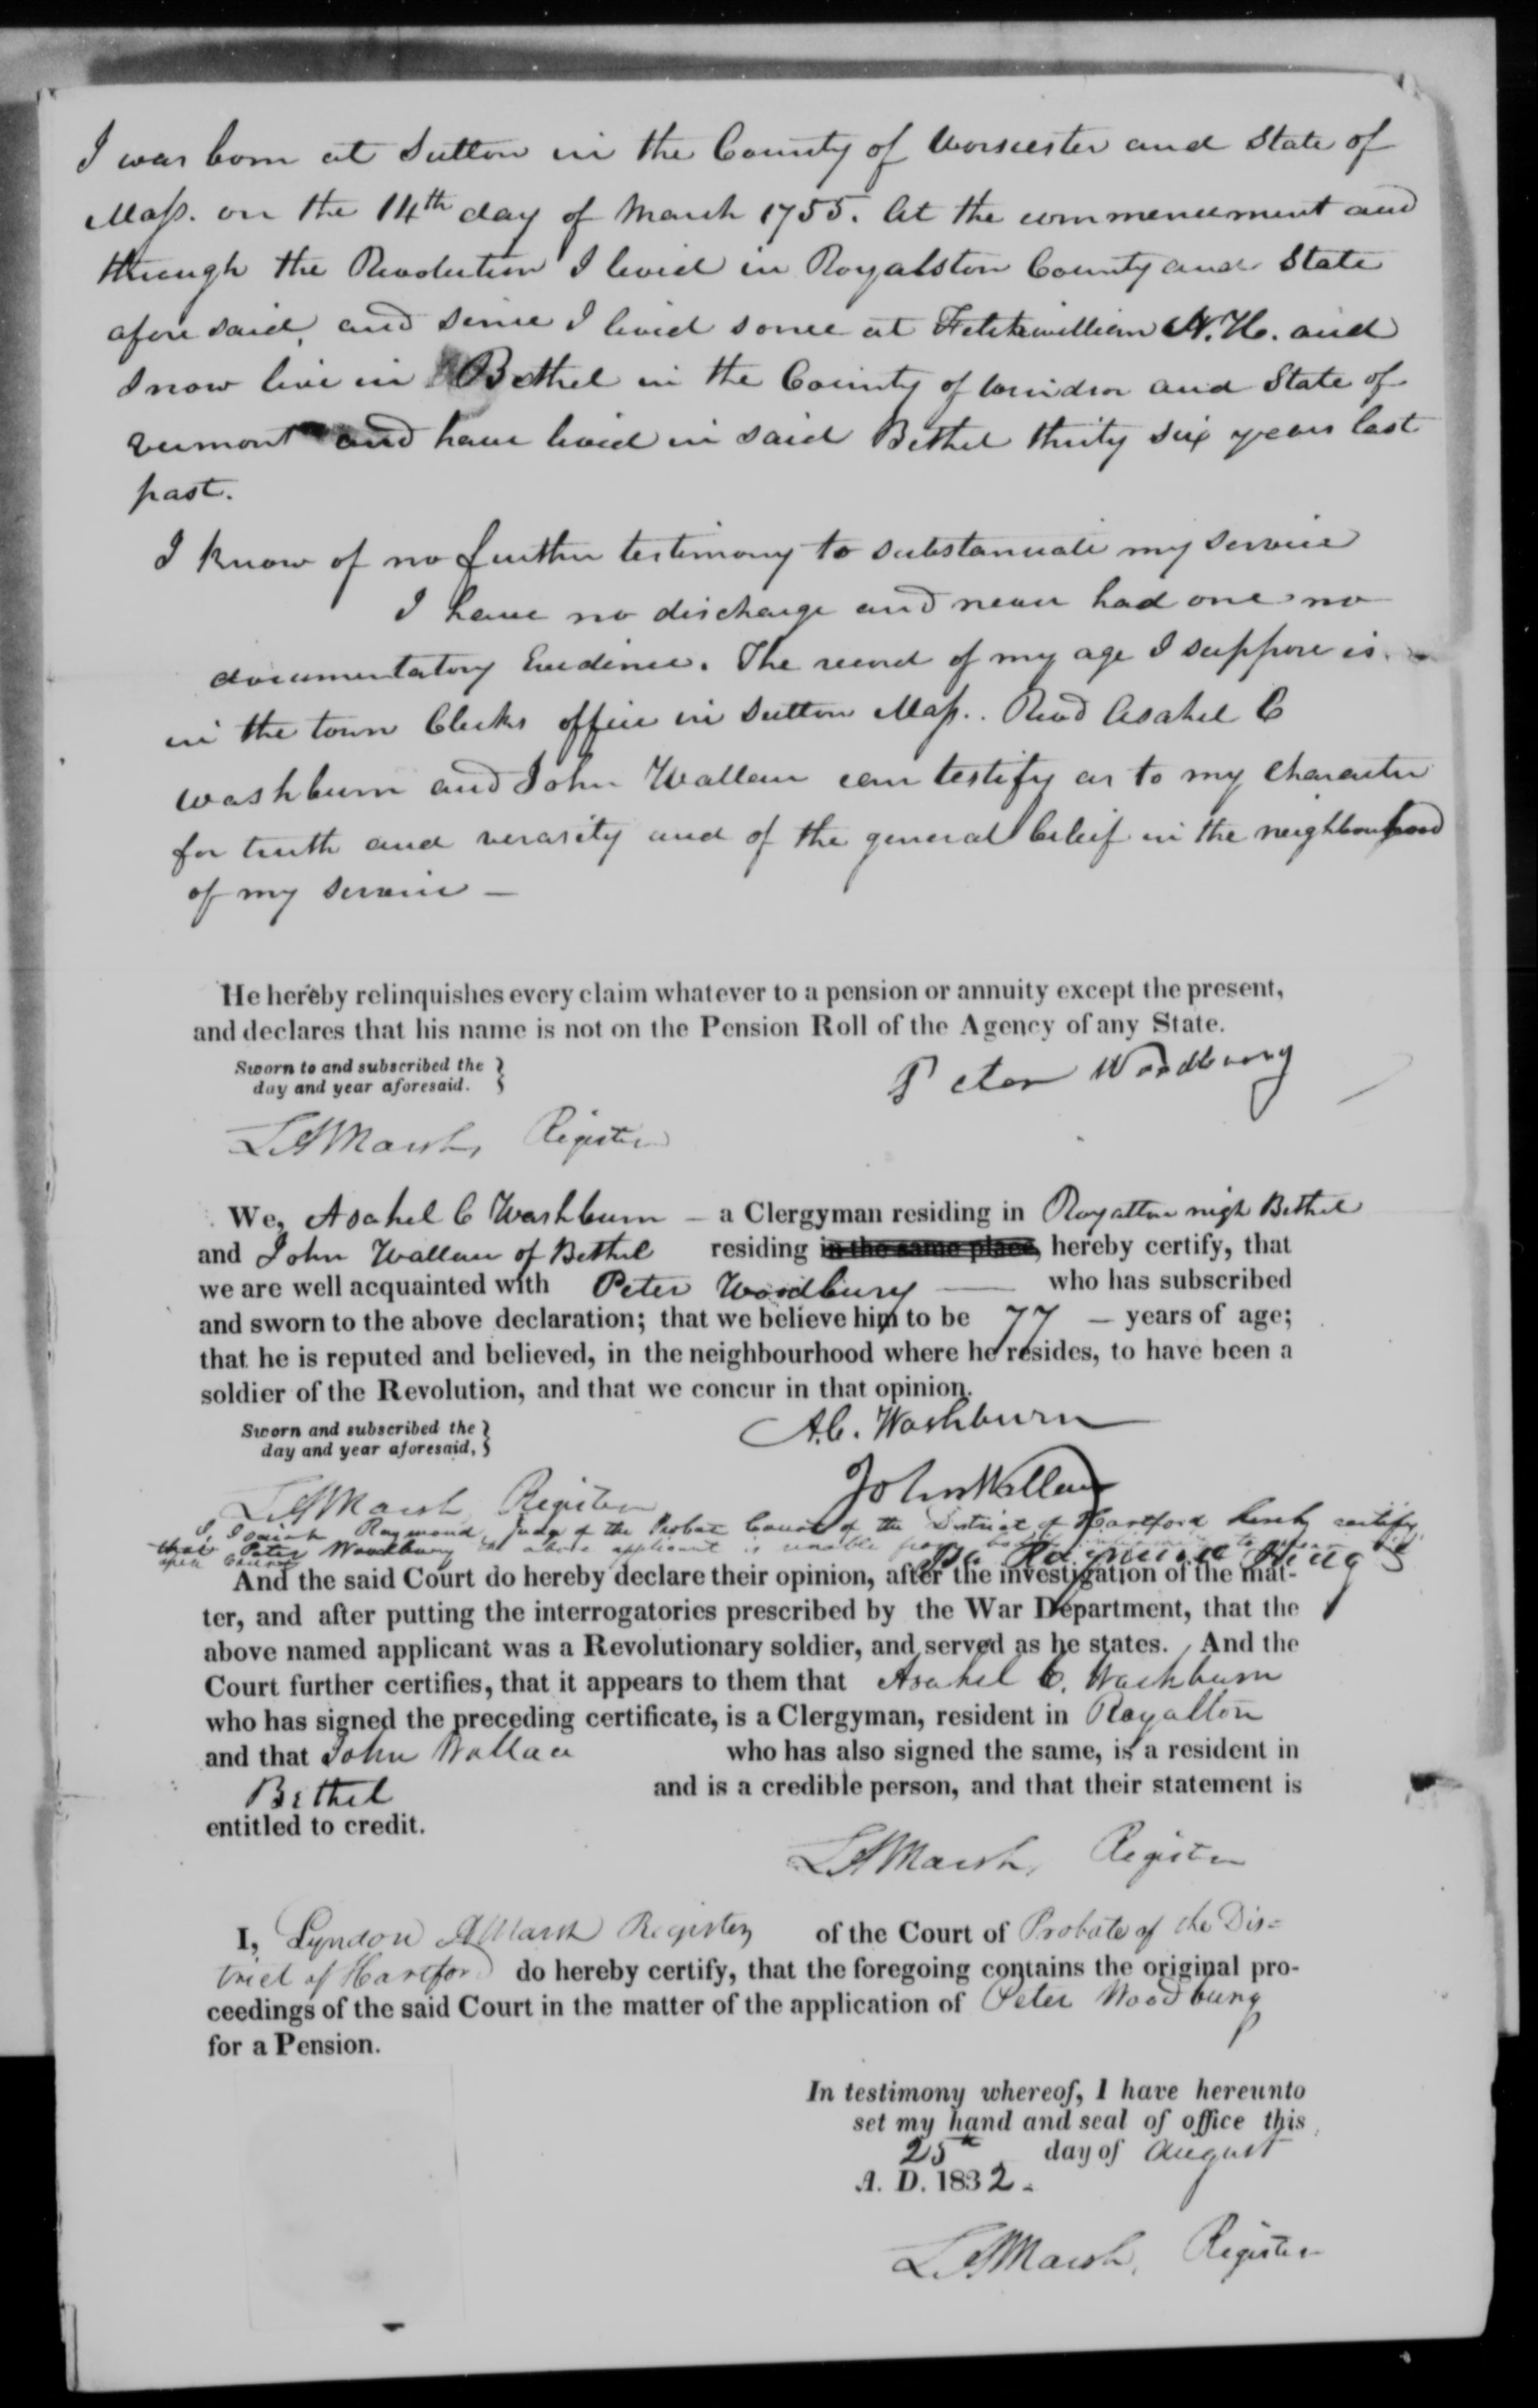 I was born at Sutton in the County of Worcester and State of
Mass. on the 14th day of March 1755. At the commencement and
through the Revolution I lived in Royalston County and State
afore said, and since I lived some at Fitchwilliam N.H. and
I now live in Bethel in the County of Windsor and State of
Vermont and have lived in said Bethel thirty six years last
past.
I know of no further testimony to substanciate my service
I have no discharge and never had one no
documentatory Evidence. The record of my age I suppose is
in the town Clerks office in Sutton Mass. Revd Asahel C
Washburn and John Wallace can testify as to my Character
for truth and verasity and of the general beleif in the neighbourhood
of my service —
He hereby relinquishes every claim whatever to a pension or annuity except the present,
and declares that his name is not on the Pension Roll of the Agency of any State.
Sworn to and subscribed the
day and year aforesaid.
Peter Woodbury
L A Marsh, Register
We, Asahel C Washburn – a Clergyman residing in Royalton nigh Bethel
and John Wallace of Bethel residing in the same place, hereby certify, that
we are well acquainted with Peter Woodbury — who has subscribed
and sworn to the above declaration; that we believe him to be 77 – years of age;
that he is reputed and believed, in the neighbourhood where he resides, to have been a
soldier of the Revolution, and that we concur in that opinion.
Sworn and subscribed the
day and year aforesaid,
A.C. Washburn
John Wallace
L A Marsh Register
I, Isaiah Raymond Judge of the Probate Court of the District of Hartford hereby certify
that Peter Woodbury the above applicant is unable from bodily to
open Court
Raymond Judge
And the said Court do hereby declare their opinion, after the investigation of the mat-
ter, and after putting the interrogatories prescribed by the War Department, that the
above named applicant was a Revolutionary soldier, and served as he states. And the
Court further certifies, that it appears to them that Asahel C. Washburn
who has signed the preceding certificate, is a Clergyman, resident in Royalton
and that John Wallace who has also signed the same, is a resident in
Bethel and is a credible person, and that their statement is
entitled to credit.
L A Marsh, Register
I, Lyndon A Marsh Register of the Court of Probate of the Dis=
trict of Hartford do hereby certify, that the foregoing contains the original pro-
ceedings of the said Court in the matter of the application of Peter Woodbury
for a Pension.
In testimony whereof, I have hereunto
set my hand and seal of office this
25th day of August
A. D. 1832.
L A Marsh, Register